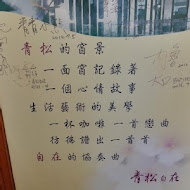 青松的窗景
一面窗記錄著
一個心情故事
生活藝術的美學
一杯咖啡一首戀曲
彷彿譜出一首首
自在的協奏曲
青松自在